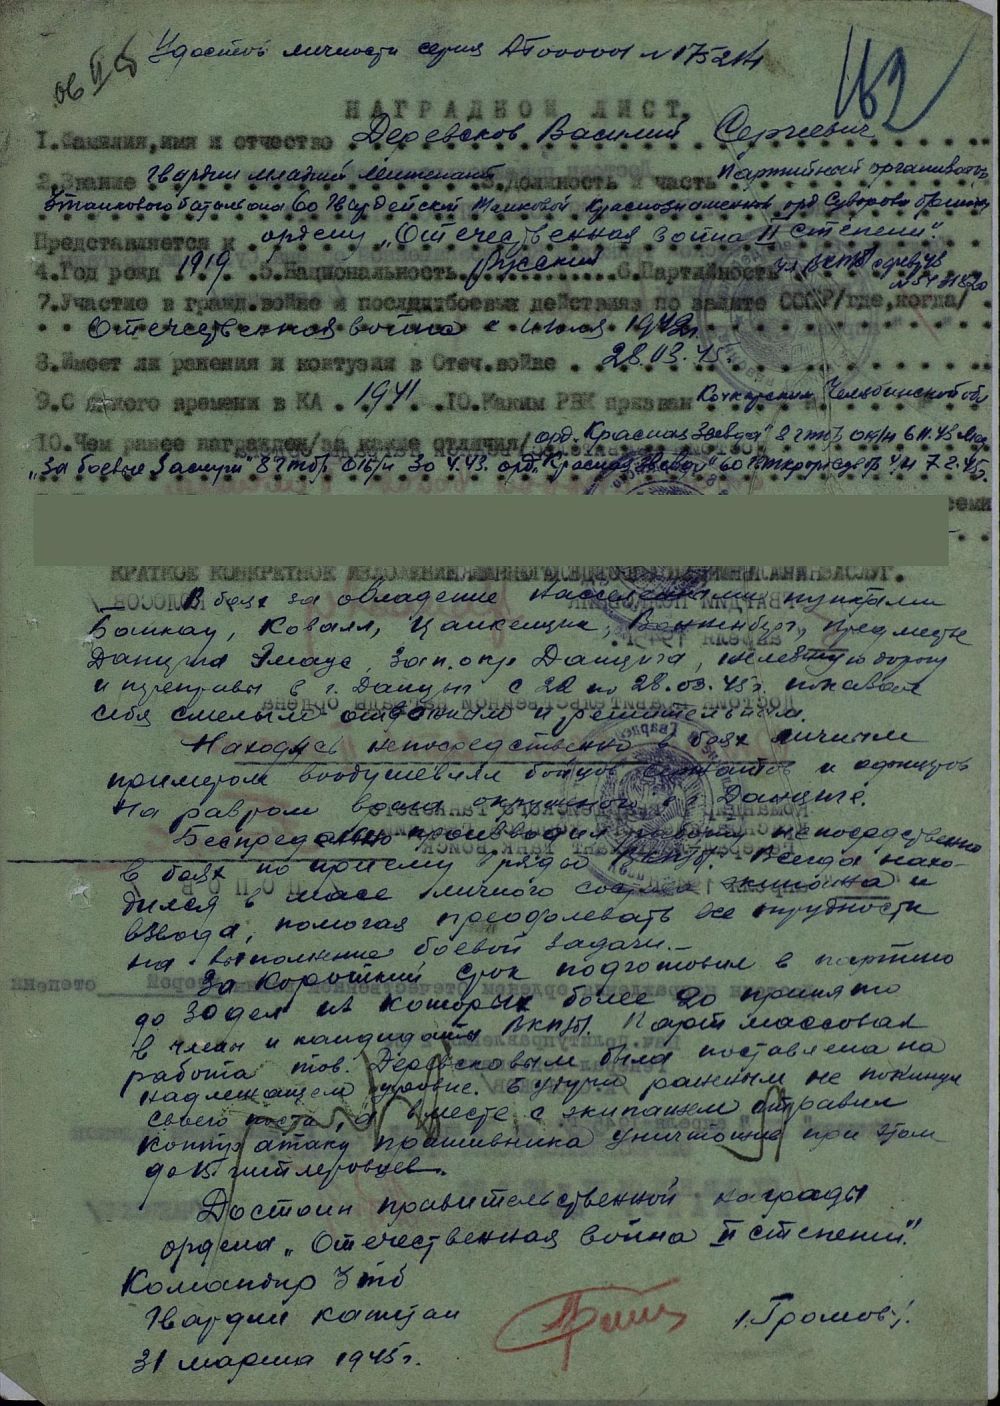 Удостов личности серия ДТ000001 № 175214
ов II ст
162
НАГРАДНОЙ ЛИСТ.
1.Фамилия,имя и отчество Деревсков Василий Сергеевич
2.Звание Гвардии младший лейтенант 3.Должность и часть Партийный организатор
3 танкового батальона 60 Гвардейской Танковой Краснознаменной орд Суворова бригады
Представляется к ордену „Отечественная война II степени".
4.Год рожд 1919 .5.Национальность русский 6.Партийность чл ВКП/б
7.Участие в гражд.войне и послед.боевых действиях по защите СССР/где,когда/
Отечественная война с июля 1942г.
8.Имеет ли ранения и контузии в Отеч.войне 28.03.45г.
9.С какого времени в КА 1941 .10.Каким РВК призван Кочкарским Челябинской обл
10.Чем ранее награжден/за какие отличия/ орд. „Красная Звезда" 8 гтбр 6.11.43 Мед
„За боевые Заслуги" 8 гтбр 30.4.43. орд. „Красная Звезда" 7.2.45.
КРАТКОЕ КОНКРЕТНОЕ ИЗЛОЖЕНИЕ ЗАСЛУГ.
В боях за овладение населенными пунктами
Банкау, Ковалл, Цанкенцин, предместье
Данцига Эмаус, Зап. окр Данцига, железную дорогу
и переправы в г. Данциг с 22 по 28.03.45г. показал
себя смелым отважным и решительным.
Находясь непосредственно в боях личным
примером воодушевлял бойцов сержантов и офицеров
на разгром врага окруженного в г Данциге.
Беспредельно производил работу непосредственно
в боях по приему в ряды ВКП/б/. Всегда нахо-
дился в массе личного состава экипажа и
взвода, помогая преодолевать все трудности
на выполнение боевой задачи.-
За короткий срок подготовил в партию
до 30 дел из которых более 20 принято
в члены и кандидаты ВКП/б/. Парт массовая
работа тов. Деревсковым была поставлена на
надлежащем уровне. Будучи раненым не покинул
своего поста, а вместе с экипажем отравил
контр атаку противника уничтожив при этом
до 15 гитлеровцев.
Достоин правительственной награды
ордена „Отечественная война II степени".
Командир 3 тб
Гвардии капитан /.Громов/.
31 марта 1945г.